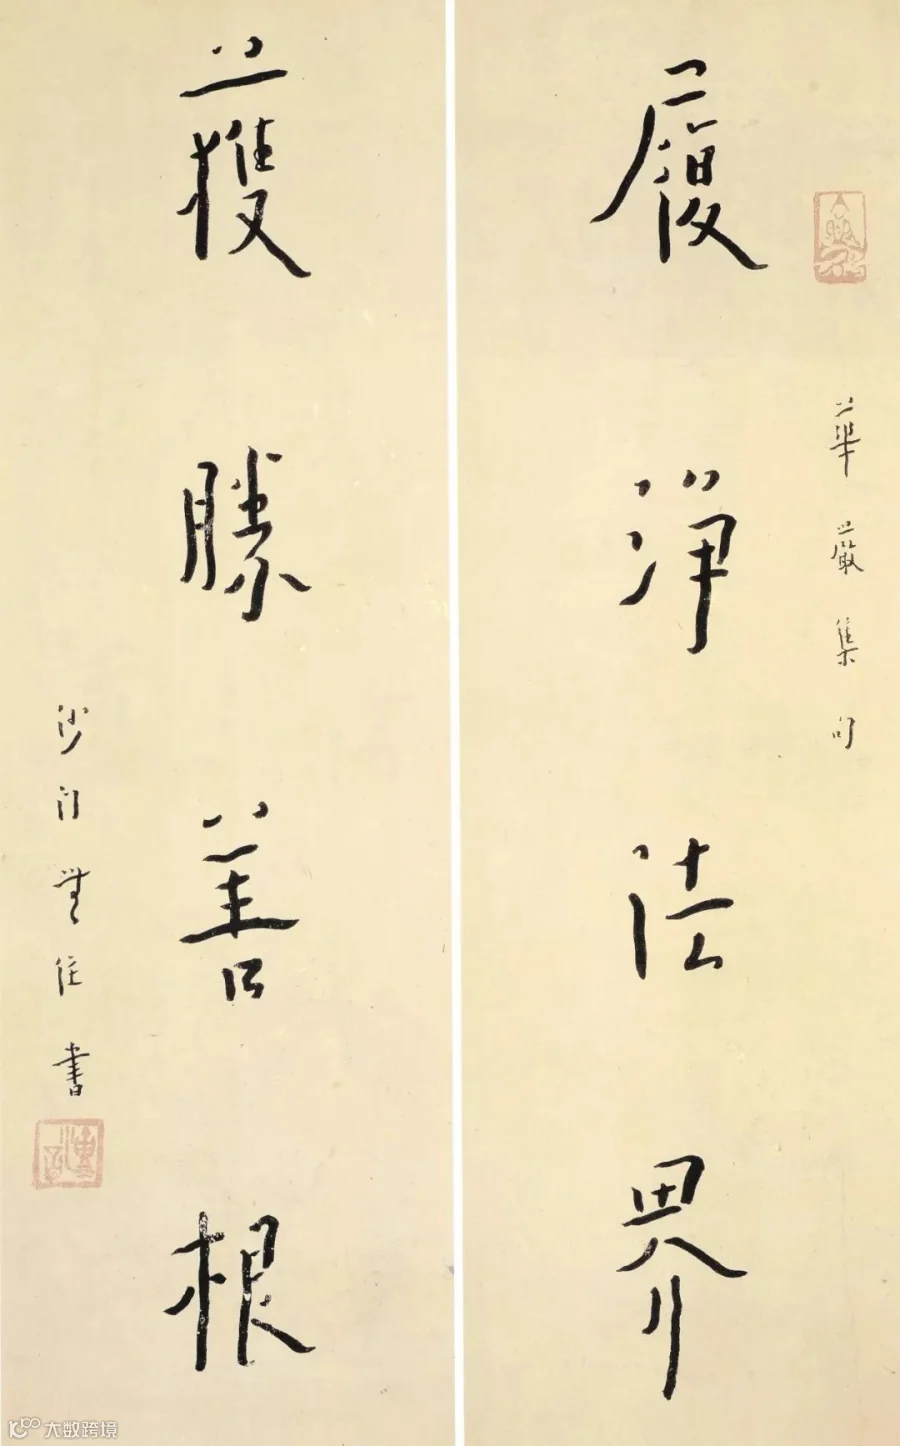 華嚴集句
履淨法界
獲勝善根
沙門無住書
大数跨境